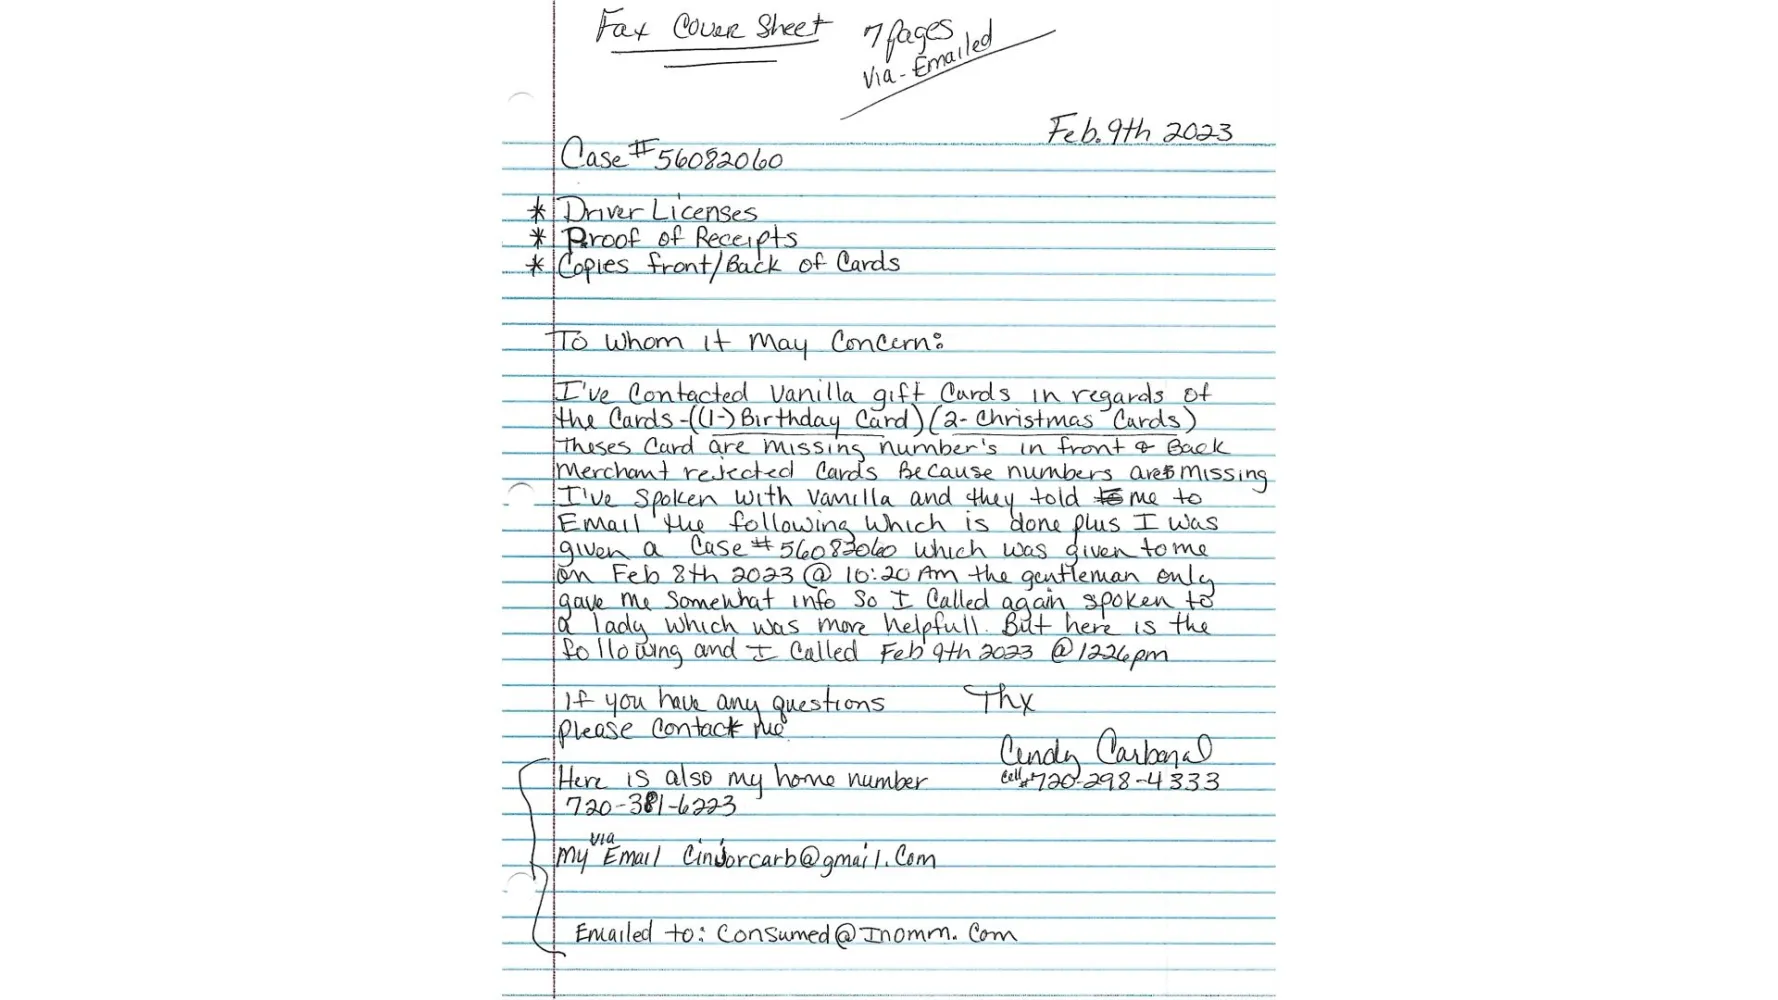 Fax Cover Sheet
7 pages
Via - Emailed
Feb. 9th 2023
Case # 56082060
* Driver Licenses
* Proof of Receipts
* Copies front/Back of Cards
To Whom it May Concern:
I've Contacted Vanilla gift Cards in regards of
the Cards - ((1-) Birthday Card) (2- Christmas Cards)
Theses Card are missing number's in front & Back
Merchant rejected Cards Because numbers are missing
I've spoken with Vanilla and they told me to
Email the following which is done plus I was
given a Case # 56082060 which was given to me
on Feb 8th 2023 @ 10:20 Am the gentleman only
gave me somewhat info So I Called again spoken to
a lady which was more helpfull. But here is the
following and I Called Feb 9th 2023 @ 1226pm
If you have any questions
Thx
please Contact me
Cindy Carbajal
Here is also my home number
Cell# 720-298-4333
720-381-6223
via
My Email Cindorcarb@gmail.Com
Emailed to: Consumed@Inomm.Com